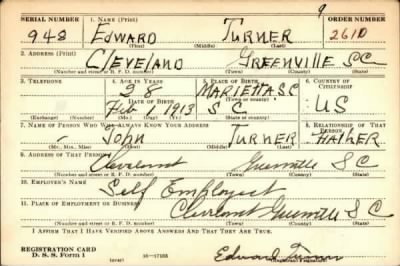 9
SERIAL NUMBER 1. NAME (Print) ORDER NUMBER
948 EDWARD TURNER 2610
(First) (Middle) (Last)
2. ADDRESS (Print)
CLEVELAND GREENVILLE SC
(Number and street or R. F. D. number) (Town) (County) (State)
3. TELEPHONE 4. AGE IN YEARS 5. PLACE OF BIRTH 6. COUNTRY OF CITIZENSHIP
28 MARIETTA SC
DATE OF BIRTH (Town or county)
Feb 1 1913 S C US
(Exchange) (Number) (Mo.) (Day) (Yr.) (State or country)
7. NAME OF PERSON WHO WILL ALWAYS KNOW YOUR ADDRESS 8. RELATIONSHIP OF THAT PERSON
John TURNER FATHER
(Mr., Mrs., Miss) (First) (Middle) (Last)
9. ADDRESS OF THAT PERSON
Cleveland Greenville S C
(Number and street or R. F. D. number) (Town) (County) (State)
10. EMPLOYER'S NAME
Self Employed
11. PLACE OF EMPLOYMENT OR BUSINESS
Cleveland Greenville S C
(Number and street or R. F. D. number) (Town) (County) (State)
I AFFIRM THAT I HAVE VERIFIED ABOVE ANSWERS AND THAT THEY ARE TRUE.
REGISTRATION CARD
D. S. S. Form 1 (over) 16-17105 Edward Turner
(Registrant's signature)